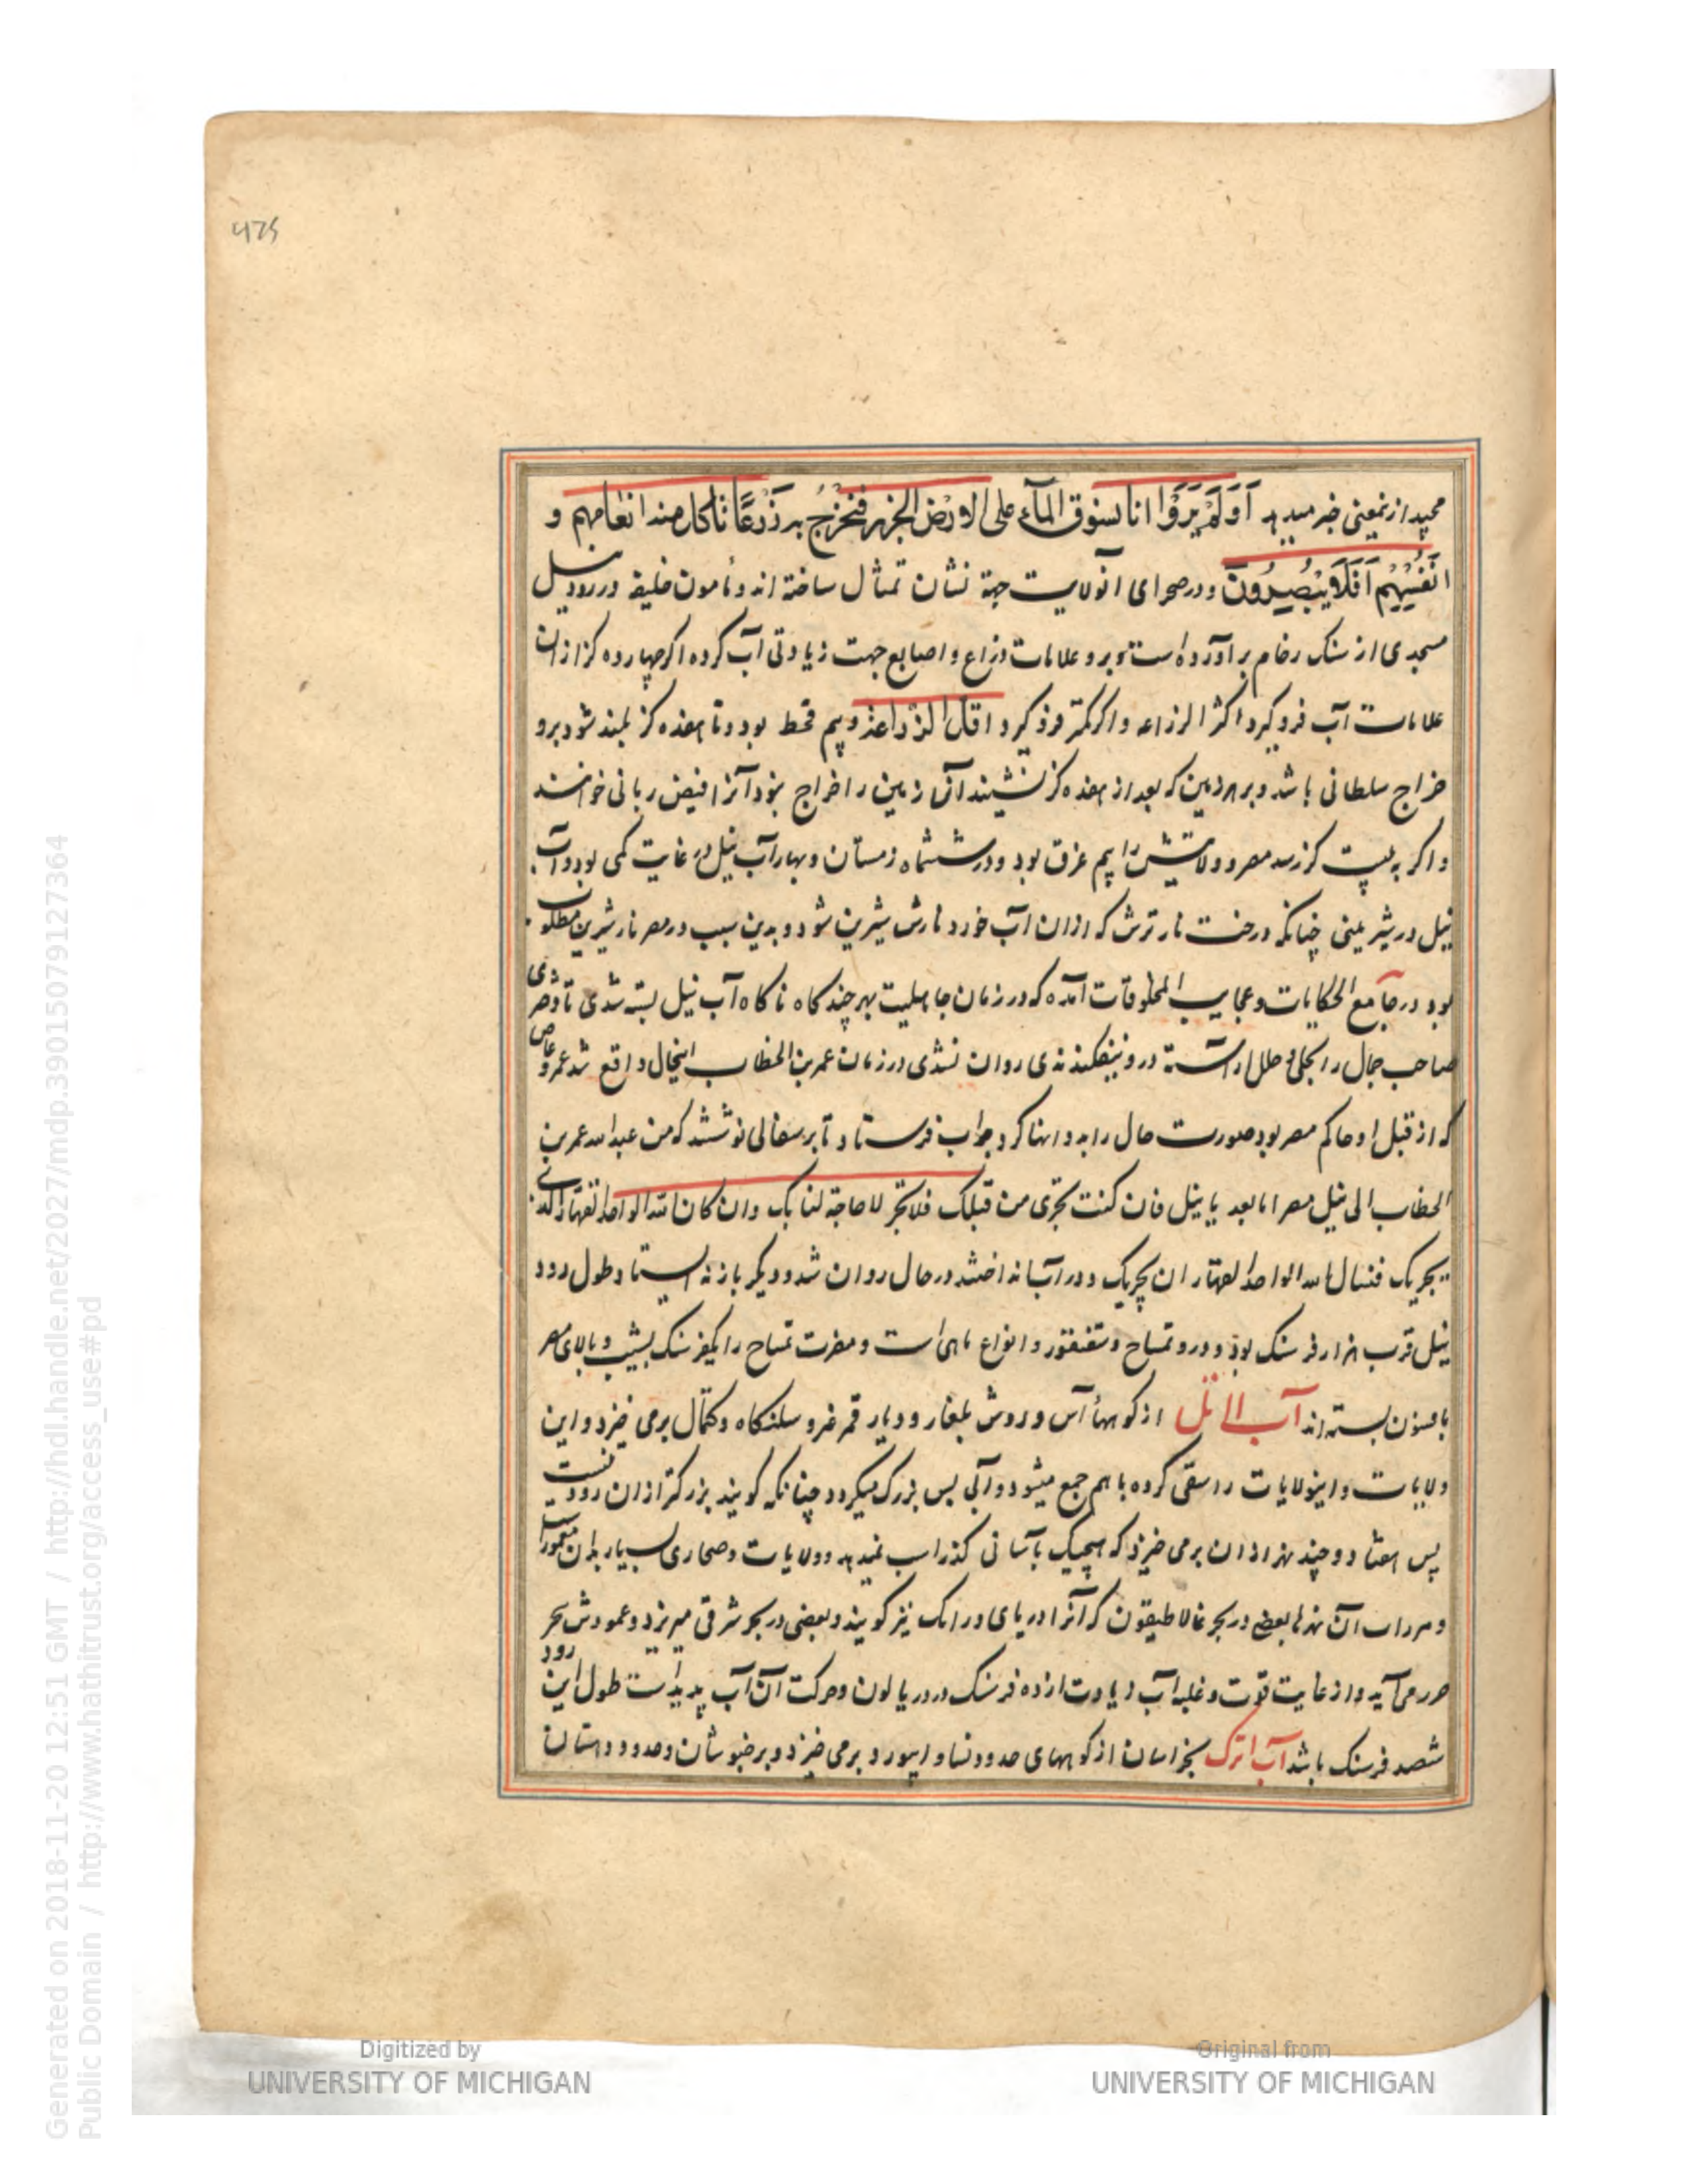 475
مجید ازینمعنی خبر میدهد اَوَلَمْ یَرَوْا انا نسوق المآء علی الارض الجرز فنخرج به زَرْعًا تاکل منه انعامهم و
انفسهم اَفَلا یُبْصِرُونَ و در صحرای آنولایت جهة نشان تمثال ساخته اند و مامون خلیفه در رود نیل
مسجدی از سنک رخام برآورده است و برو علامات ذراع و اصابع جهت زیادتی آب کرده اکر چهارده کز ازان
علامات آب فرو کیرد اکثر الزراعه و اکر کمتر فرو کیرد اقل الزراعه و بیم قحط بود و تا هفده کز بلند شود برو
خراج سلطانی باشد و بر هر زمین که بعد از هفده کز نشیند آن زمین را خراج نبود آنرا فیض ربانی خوانند
و اکر به بیست کز رسد مصر و ولایتش را بیم غرق بود و در ششماه زمستان و بهار آب نیل در غایت کمی بود و آب
نیل در شیرینی چنانکه درخت نار ترش که ازان آب خورد نارش شیرین شود و بدین سبب در مصر نار شیرین مطلوب
بود در جامع الحکایات و عجایب المخلوقات آمده که در زمان جاهلیت بهر چند کاه ناکاه آب نیل بسته شدی تا دختری
صاحب جمال را بحلی و حلل آراسته درو نیفکندندی روان نشدی در زمان عمر بن الخطاب اینحال واقع شد عمرو عاص
که از قبل او حاکم مصر بود صورت حال را بدو انها کرد جواب فرستاد تا بر سفالی نوشتند که من عبدالله عمر بن
الخطاب الی نیل مصر اما بعد یا نیل فان کنت تجری من قبلک فلا تجر لا حاجة لنا بک وان کان الله الواحد القهار الذی
یجریک فنسال الله الواحد القهار ان یجریک و در آب انداختند در حال روان شد و دیکر باز نه ایستاد و طول رود
نیل قرب هزار فرسنک بود و درو تمساح و سقنقور و انواع ماهی است و مضرت تمساح را یکفرسنک بشیب و بالای مصر
بافسون بسته اند آب اتل از کوههاء آس و روش بلغار و دیار قمر غرو سلنکاه و کتمال برمی خیزد و این
ولایات و اینولایات را سقی کرده باهم جمع میشود و آبی بس بزرک میکردد چنانکه کویند بزرکتر ازان رود نیست
پس هفتاد و چند نهر ازان برمی خیزد که هیچیک بآسانی کذر اب نمیدهد و ولایات و صحاری بسیار بدان معمور
و مرداب آن نهرها بعضی در بحر غالاطیقون که آنرا دریای ورانک نیز کویند و بعضی در بحر شرقی میریزد و عمودش ببحر
خزر می آید و از غایت قوت و غلبه آب زیادت از ده فرسنک در دریا لون و حرکت آن آب پدید است طول این رود
ششصد فرسنک باشد آب اترک بخراسان از کوههای حدود نسا و ابیورد برمی خیزد و بر خبوشان و حدود دهستان
Digitized by
UNIVERSITY OF MICHIGAN
Original from
UNIVERSITY OF MICHIGAN
Generated on 2018-11-20 12:51 GMT / http://hdl.handle.net/2027/mdp.39015079127364
Public Domain / http://www.hathitrust.org/access_use#pd